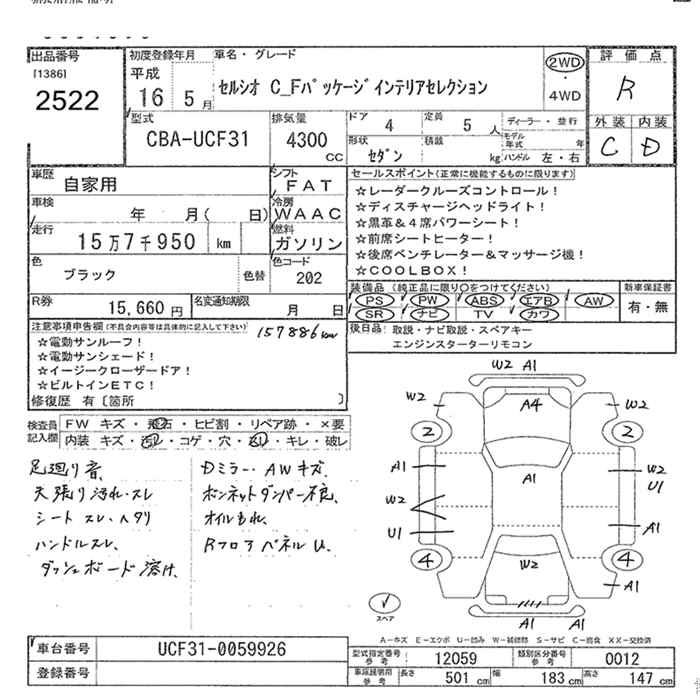 出品番号
[1386]
2522
初度登録年月
平成
16年 5月
車名・グレード
セルシオ C_Fパッケージインテリアセレクション
2WD
・
4WD
評価点
R
外装 内装
C D
型式
CBA-UCF31
排気量
4300 cc
ドア 4
定員 5 人
形状 セダン
積載 kg
ディーラー・並行
モデル年式 年
ハンドル 左・右
車歴
自家用
シフト
FAT
車検
年 月( 日)
冷房
WAAC
走行
15万7千950 km
燃料
ガソリン
色
ブラック
色替
色コード
202
R券
15,660 円
名変通知期限
月 日
セールスポイント(正常に機能するものに限ります)
☆レーダークルーズコントロール!
☆ディスチャージヘッドライト!
☆黒革&4席パワーシート!
☆前席シートヒーター!
☆後席ベンチレーター&マッサージ機!
☆COOLBOX!
装備品(純正品に限り○をつけてください)
PS PW ABS エアB AW
SR ナビ TV カワ
新車保証書
有・無
後日品: 取説・ナビ取説・スペアキー
エンジンスターターリモコン
注意事項申告欄(不具合内容等は具体的に記入して下さい)
157886km
☆電動サンルーフ!
☆電動サンシェード!
☆イージークローザードア!
☆ビルトインETC!
修復歴 有〔箇所 〕
検査員記入欄
FW キズ・飛石・ヒビ割・リペア跡・×要
内装 キズ・汚レ・コゲ・穴・スレ・キレ・破レ
足廻り音、
天張り汚れ・スレ
シート スレ・ヘタリ
ハンドルスレ、
ダッシュボード溶け、
Dミラー・AWキズ、
ボンネットダンパー不良、
オイルもれ、
RフロアパネルU、
W2 A1
W2
A4
W2
2
2
A1
A1
W2
U1
W2
U1
A1
4
W2
4
A1
A1 A1
スペア
A-キズ E-エクボ U-凹み W-補修跡 S-サビ C-腐食 XX-交換済
車台番号
UCF31-0059926
登録番号
型式指定番号
参考
12059
類別区分番号
参考
0012
車両諸元用
参考
長さ 501 cm
幅 183 cm
高さ 147 cm